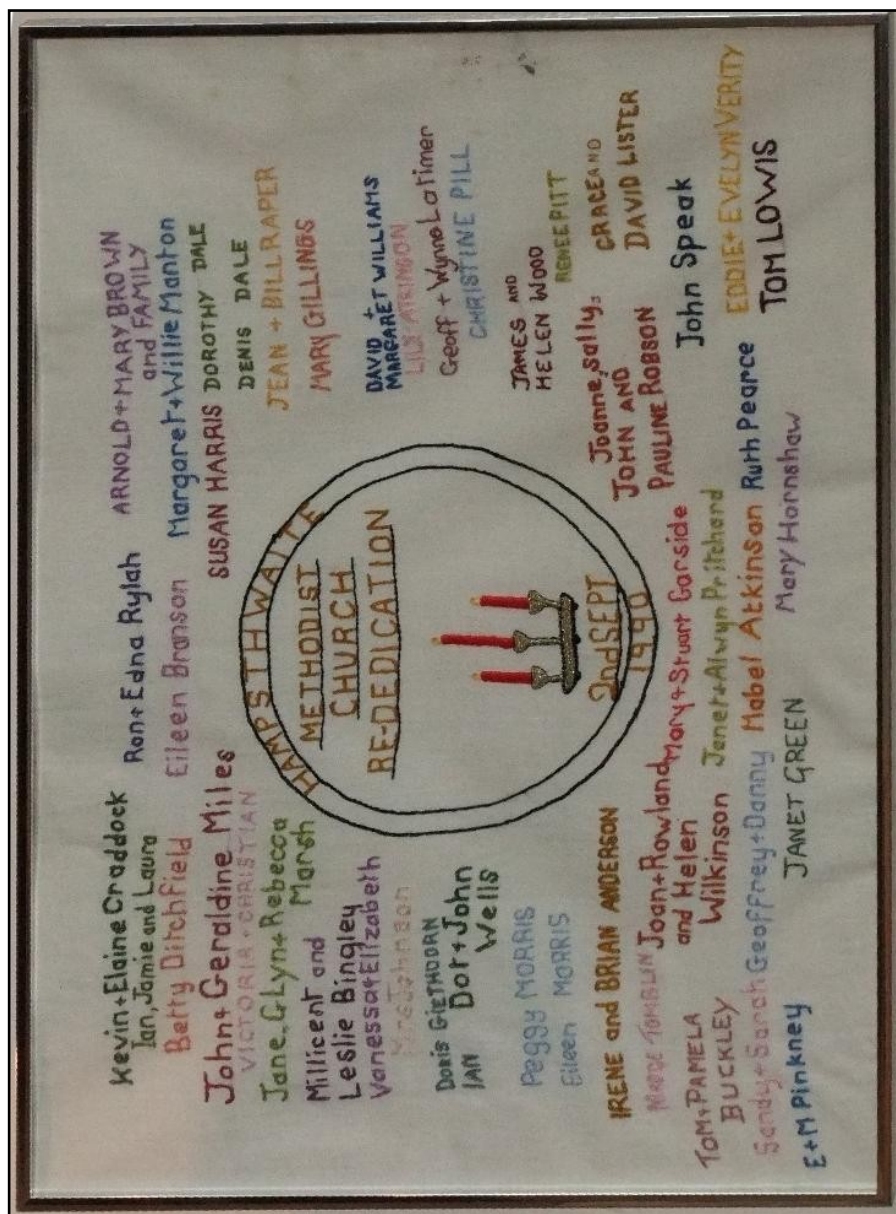 Kevin + Elaine Craddock
Ian, Jamie and Laura
Betty Ditchfield
John + Geraldine Miles
VICTORIA + CHRISTIAN
Jane, GLyn + Rebecca
Marsh
Millicent and
Leslie Bingley
Vanessa + Elizabeth
Mrs Johnson
DORIS GIETHOORN
IAN
Dot + John
Wells
Peggy MORRIS
Eileen MORRIS
IRENE and BRIAN ANDERSON
TOMBLIN
TOM + PAMELA
BUCKLEY
Sandy + Sarah Geoffrey + Danny
E + M Pinkney
Ron + Edna Rylah
Eileen Branson
HAMPSTHWAITE
METHODIST
CHURCH
RE-DEDICATION
2nd SEPT
1990
Joan + Rowland
and Helen
Wilkinson
Mary + Stuart Garside
Janet + Alwyn Pritchard
Mabel Atkinson
JANET GREEN
ARNOLD + MARY BROWN
and FAMILY
Margaret + Willie Manton
SUSAN HARRIS
DOROTHY DALE
DENIS DALE
JEAN + BILL RAPER
MARY GILLINGS
DAVID +
MARGARET WILLIAMS
LILY ATKINSON
Geoff + Wynne Latimer
CHRISTINE PILL
JAMES AND
HELEN WOOD
RENEE PITT
Joanne, Sally,
JOHN AND
PAULINE ROBSON
GRACE AND
DAVID LISTER
John Speak
Ruth Pearce
EDDIE + EVELYN VERITY
Mary Hornshaw
TOM LOWIS